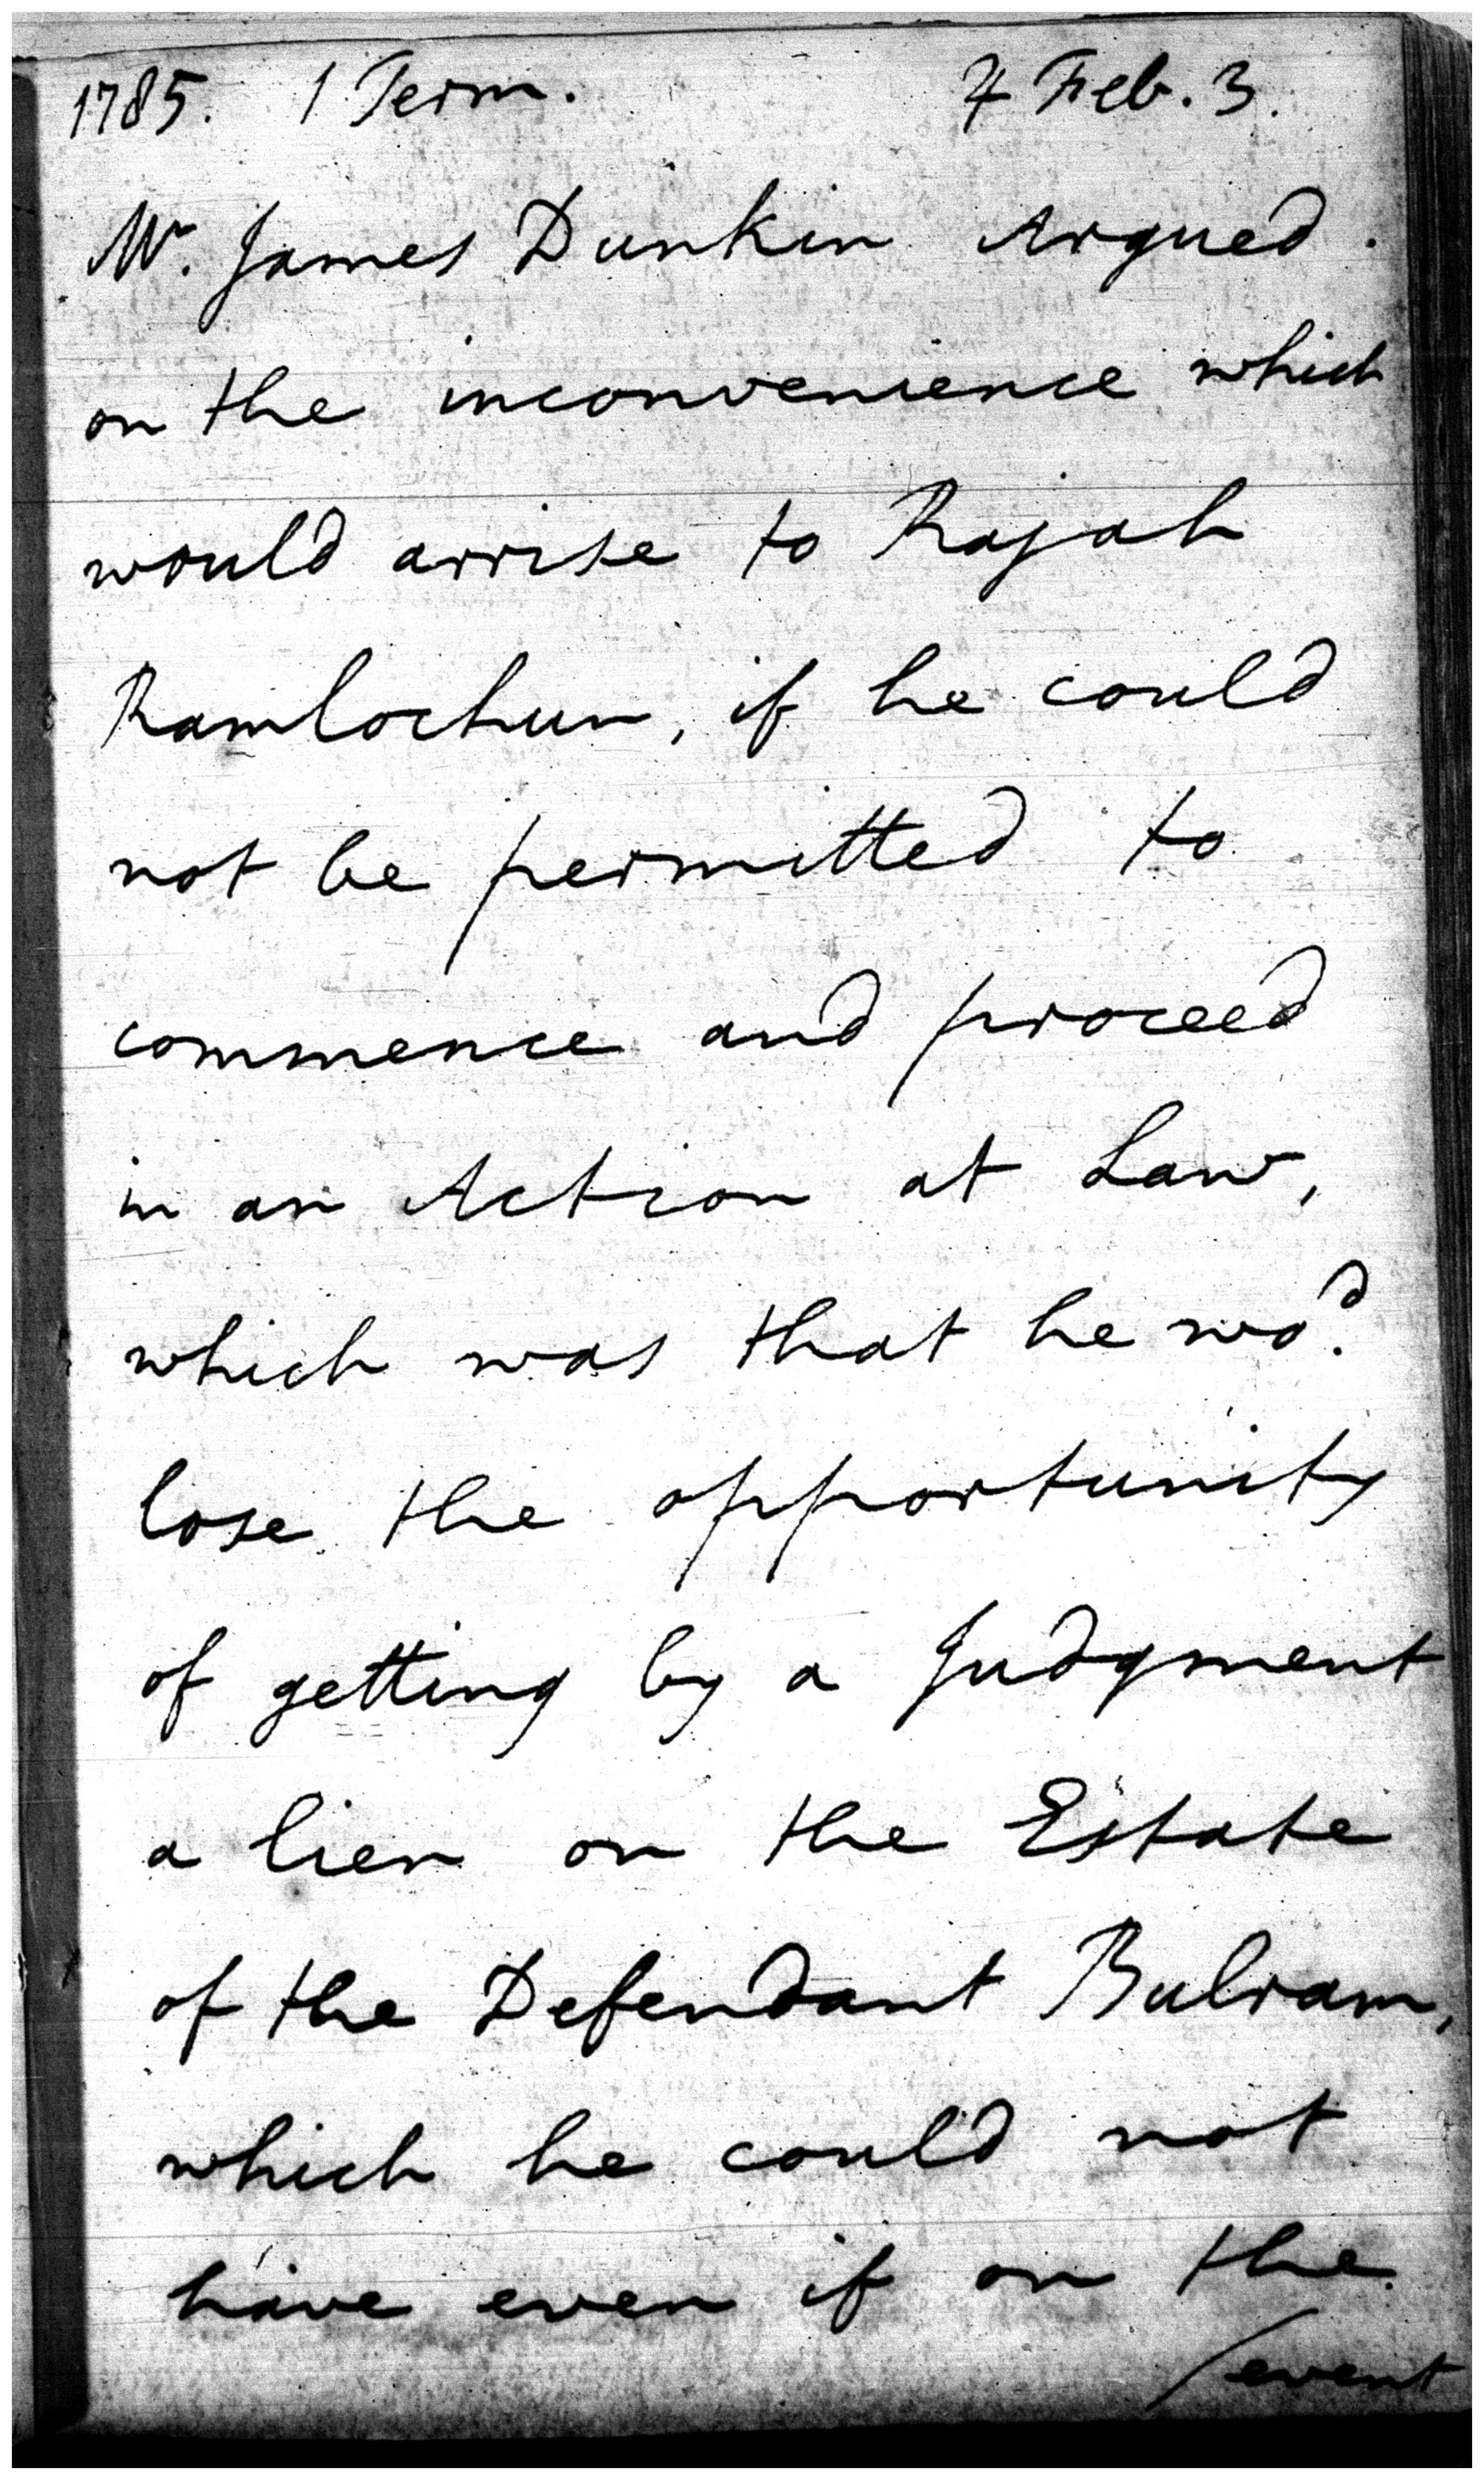 1785. 1 Term. 7 Feb. 3.
Mr. James Dunkin Argued.
on the inconvenience which
would arrise to Rajah
Ramlochun, if he could
not be permitted to
commence and proceed
in an Action at Law,
which was that he wod.
lose the opportunity
of getting by a Judgment
a lien on the Estate
of the Defendant Bulram,
which he could not
have even if on the
/event